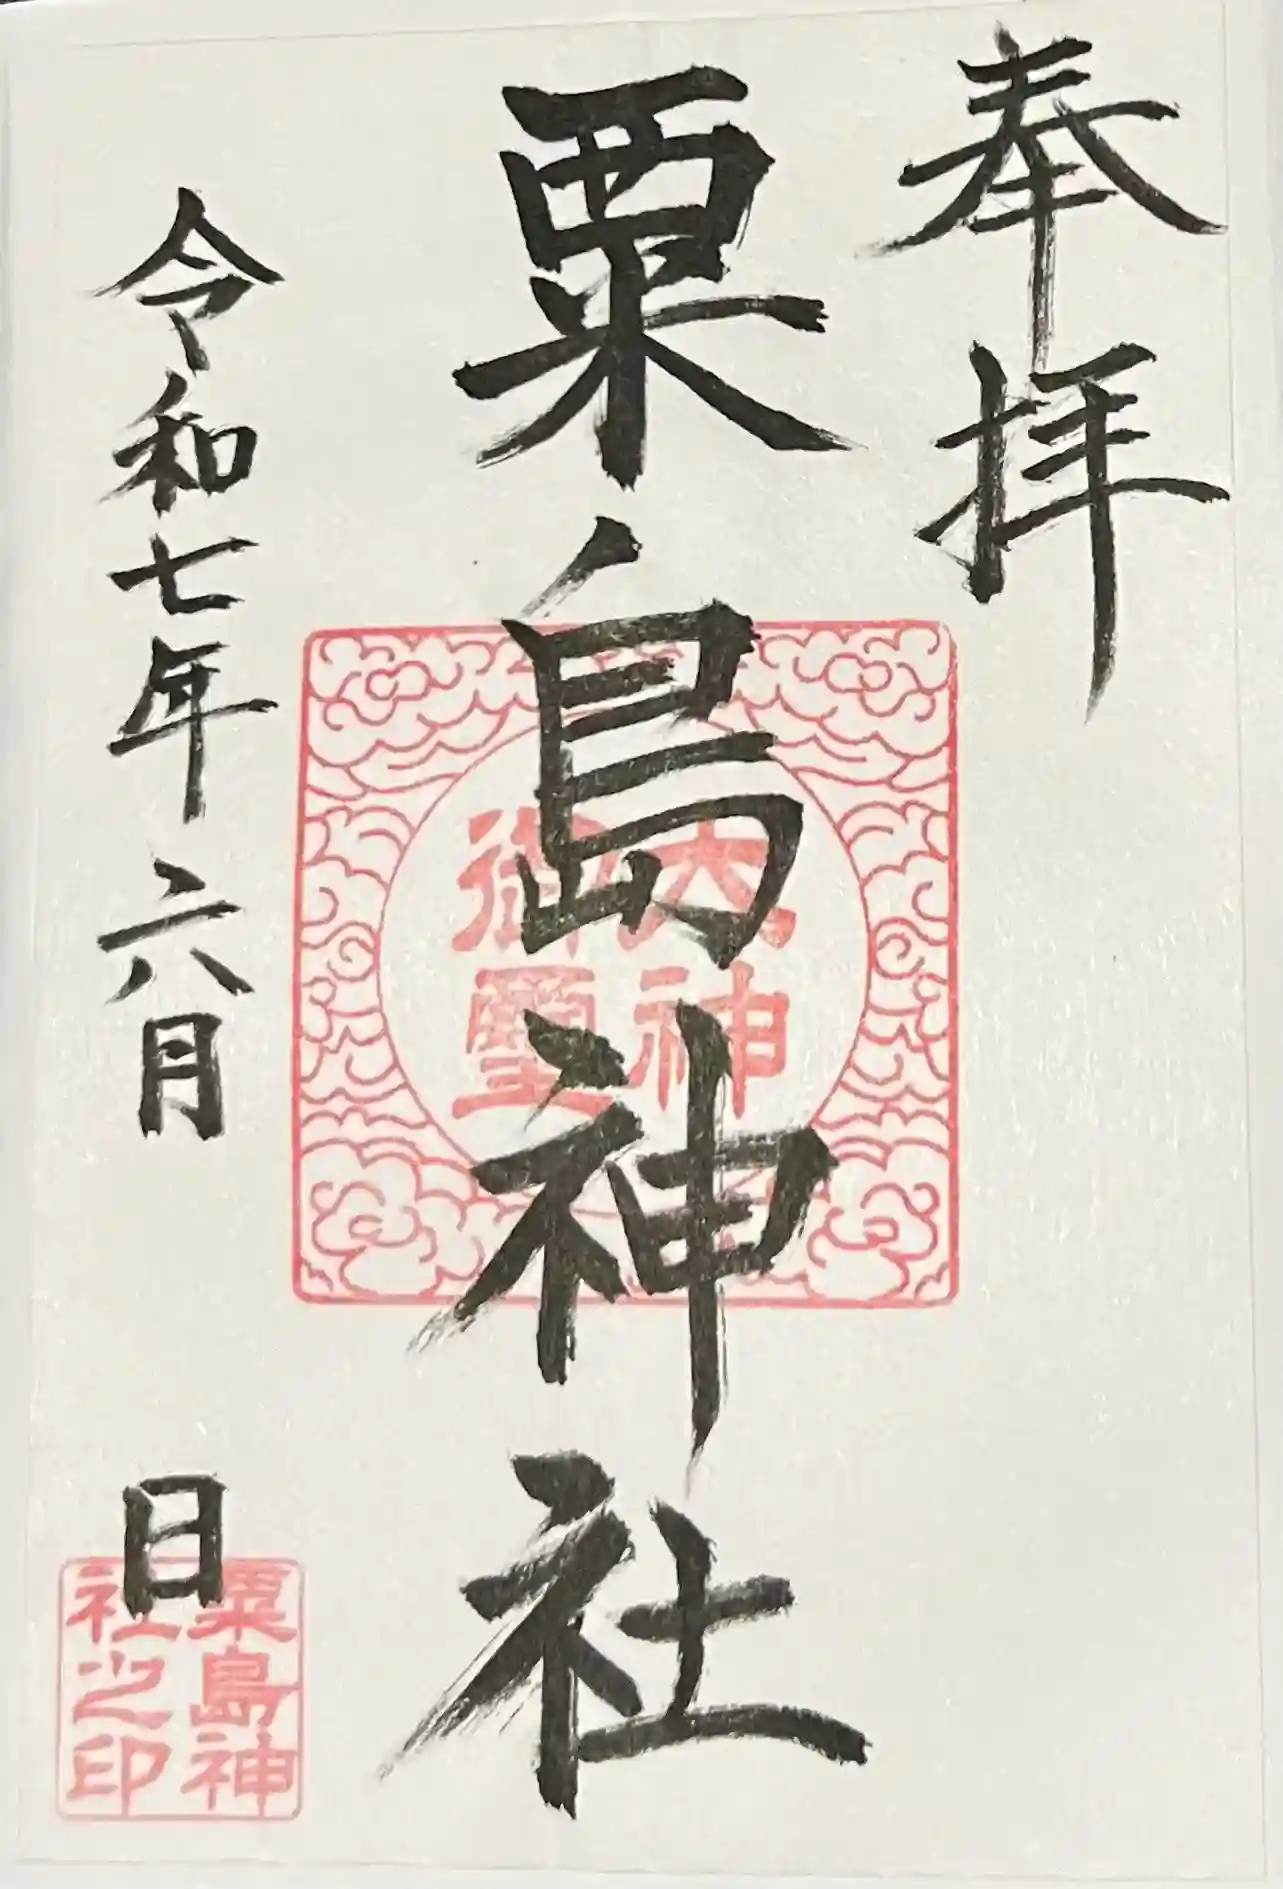 奉拝
粟島神社
大神
御璽
令和七年六月 日
粟島神
社之印